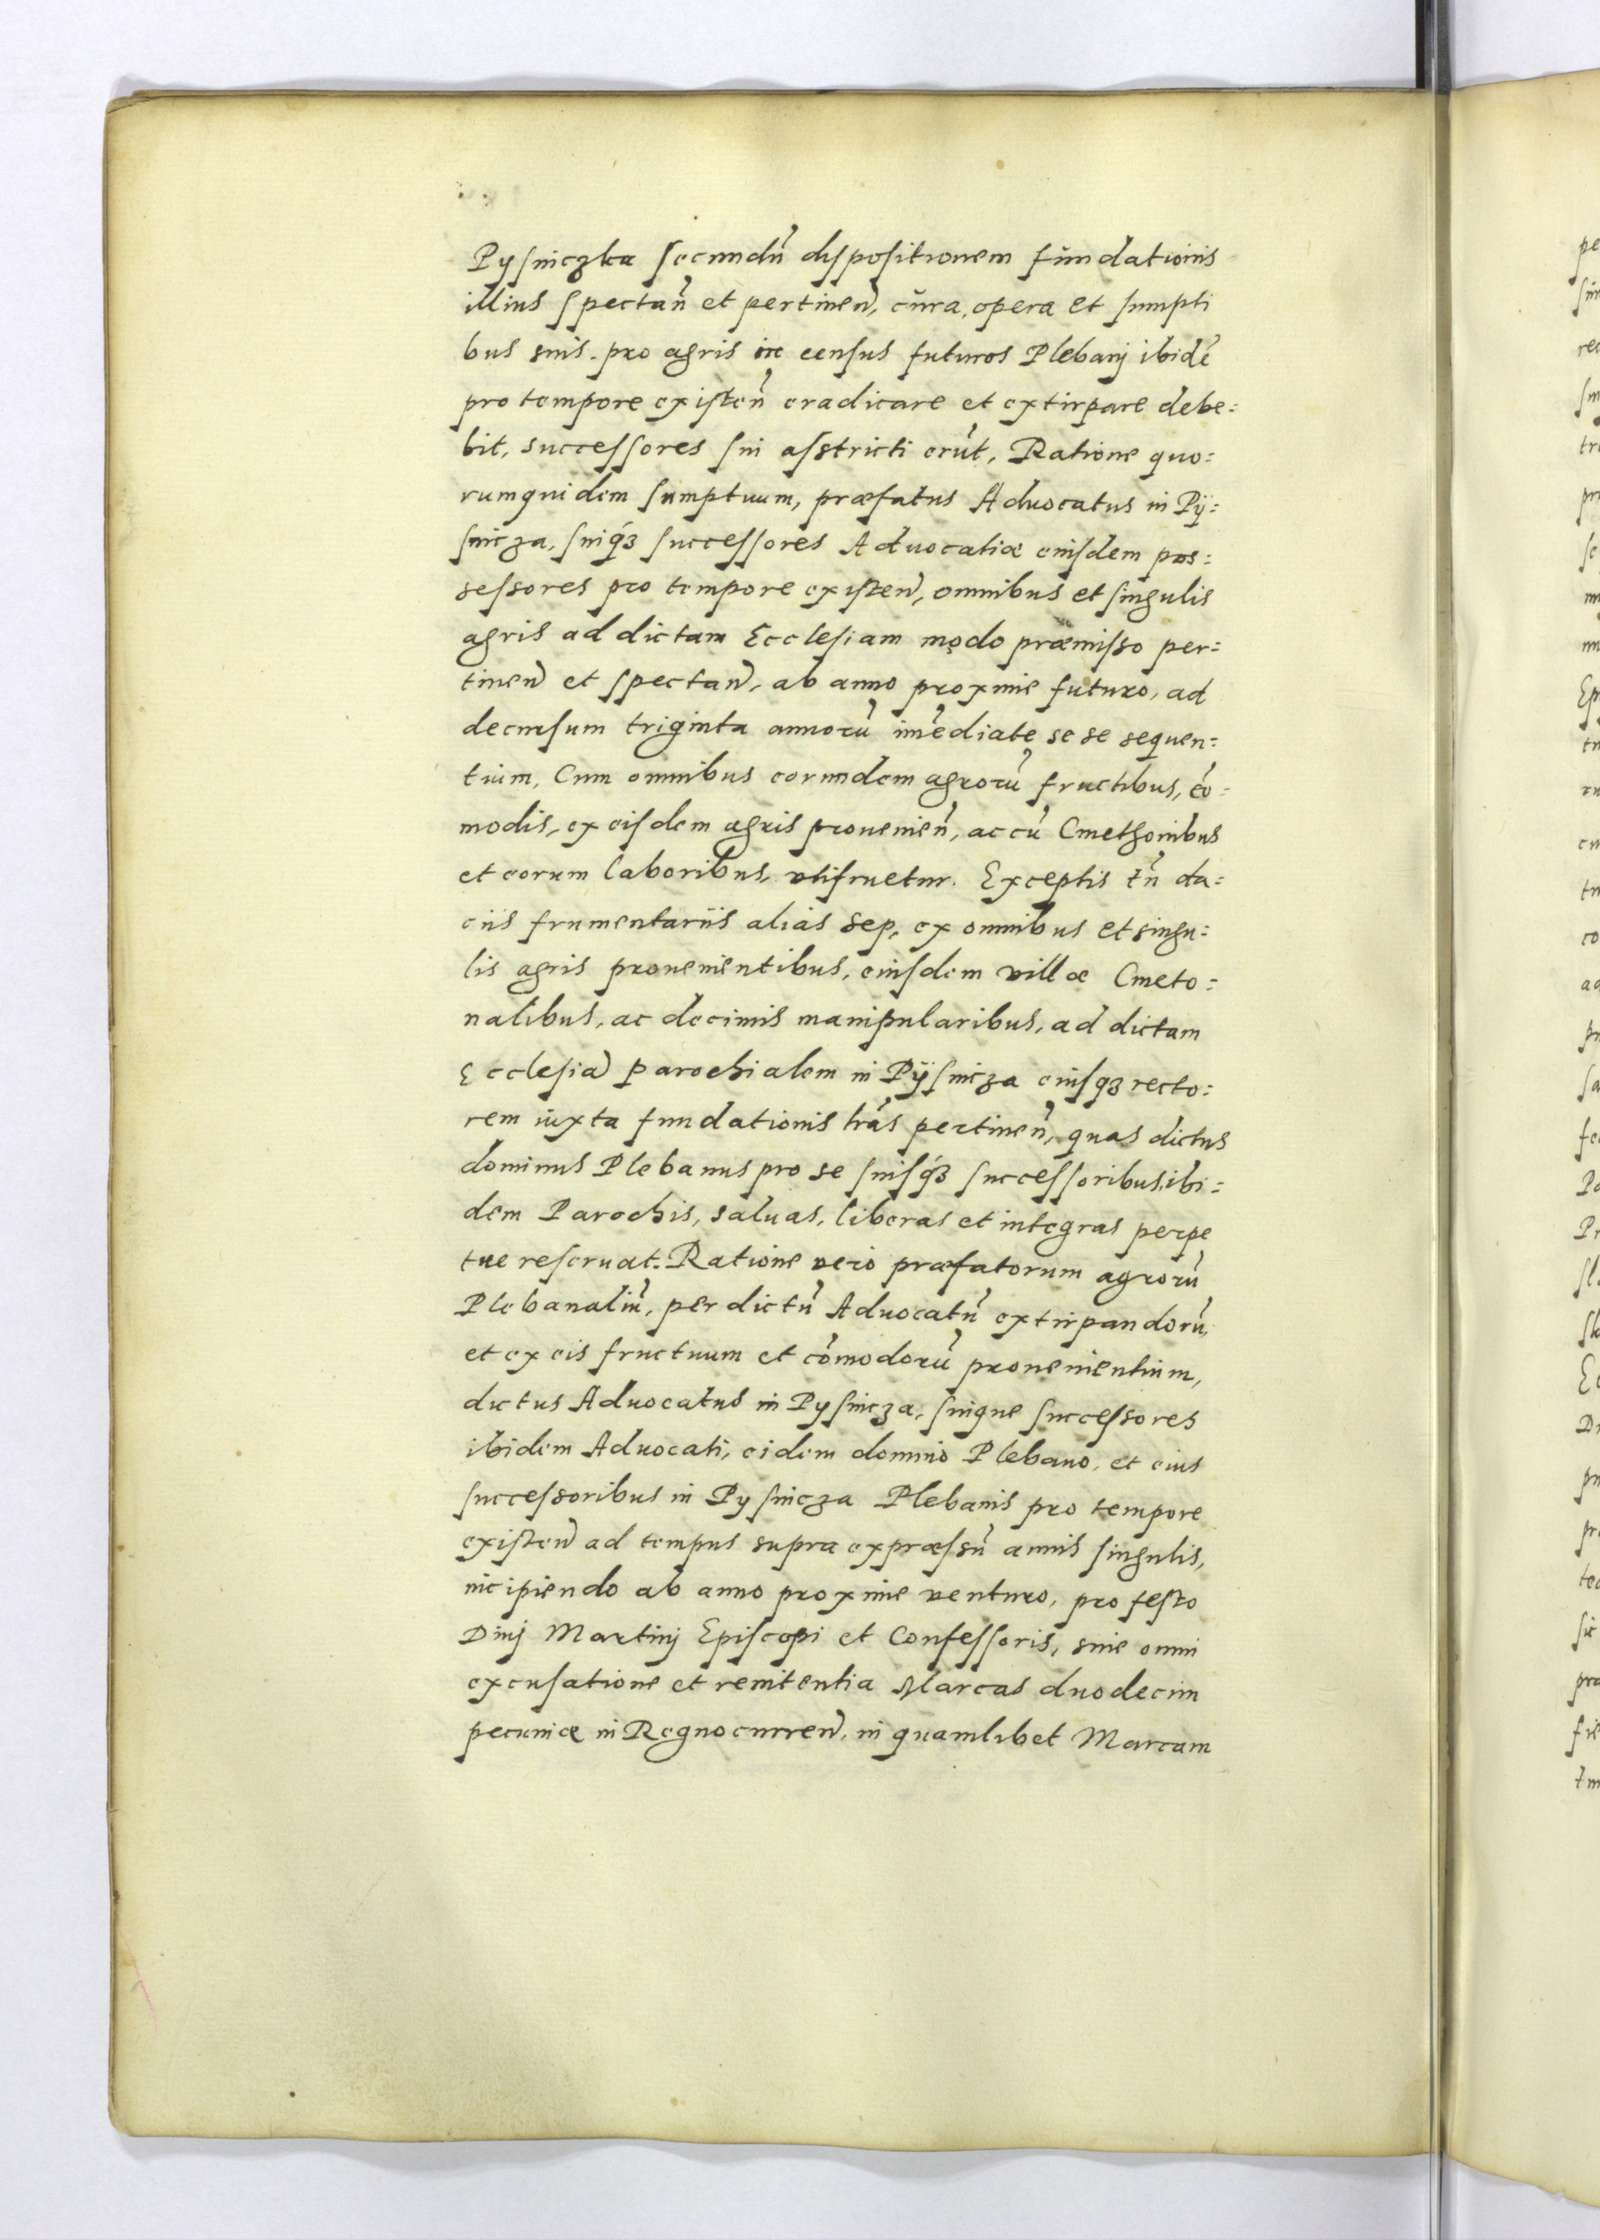 Pysniczka secundũ dispositionem fundationis
illius spectan̄ et pertinen̄, cura, opera et sumpti
bus suis. pro agris in census futuros Plebanj ibidẽ
pro tempore existen̄ eradicare et extirpare debe=
bit, successores sui asstricti erũt, Ratione quo=
rumquidem sumptuum, præfatus Aduocatus in Pÿ=
snicza, suiqȝ successores Aduocatiæ eiusdem pos=
sessores pro tempore existen̄, omnibus et singulis
agris ad dictam Ecclesiam modo præmisso per=
tinen̄ et spectan̄, ab anno proxime futuro, ad
decursum triginta annorũ im̃ediate se se sequen=
tium, Cum omnibus eorundem agrorũ fructibus, cõ=
modis, ex eisdem agris prouenien̄, ac cũ Cmethonibus
et eorum laboribus, vtifruetur. Exceptis tñ da=
ciis frumentariis aliàs sep, ex omnibus et singu=
lis agris prouenientibus, eiusdem villæ Cmeto=
nalibus, ac decimis manipularibus, ad dictam
Ecclesiã Parochialem in Pÿsnicza eiusqȝ recto=
rem iuxta fundationis lrãs pertinen̄, quas dictus
dominus Plebanus pro se suisqȝ successoribus ibi=
dem Parochis, saluas, liberas et integras perpe
tue reseruat. Ratione vero præfatorum agrorũ
Plebanaliũ, per dictũ Aduocatũ extirpandorũ,
et ex eis fructuum et cõmodorũ prouenientium,
dictus Aduocatus in Pysnicza, suique successores
ibidem Aduocati, eidem domino Plebano, et eius
successoribus in Pysnicza Plebanis pro tempore
existen̄ ad tempus supra expræssũ annis singulis,
incipiendo ab anno proxime venturo, pro festo
Diui Martinj Episcopi et Confessoris, sine omni
excusatione et renitentia Marcas duodecim
pecuniæ in Regno curren̄, in quamlibet Marcam